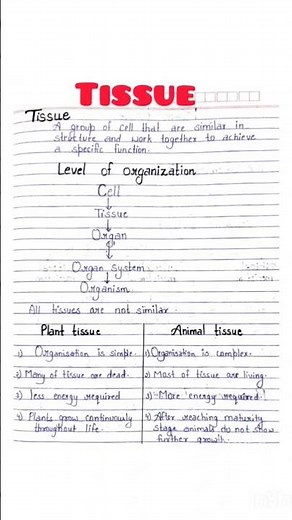 TISSUE
Tissue
A group of cell that are similar in
structure and work together to achieve
a specific function.
Level of organization
Cell
↓
Tissue
↓
Organ
↓
Organ System
↓
Organism.
All tissues are not similar.
Plant tissue
Animal tissue
1) Organisation is simple.
1) Organisation is complex.
2) Many of tissue are dead.
2) Most of tissue are living.
3) less energy required
3) More energy required.
4) Plants grow continuously
throughout life.
4) After reaching maturity
stage animals do not show
further growth.